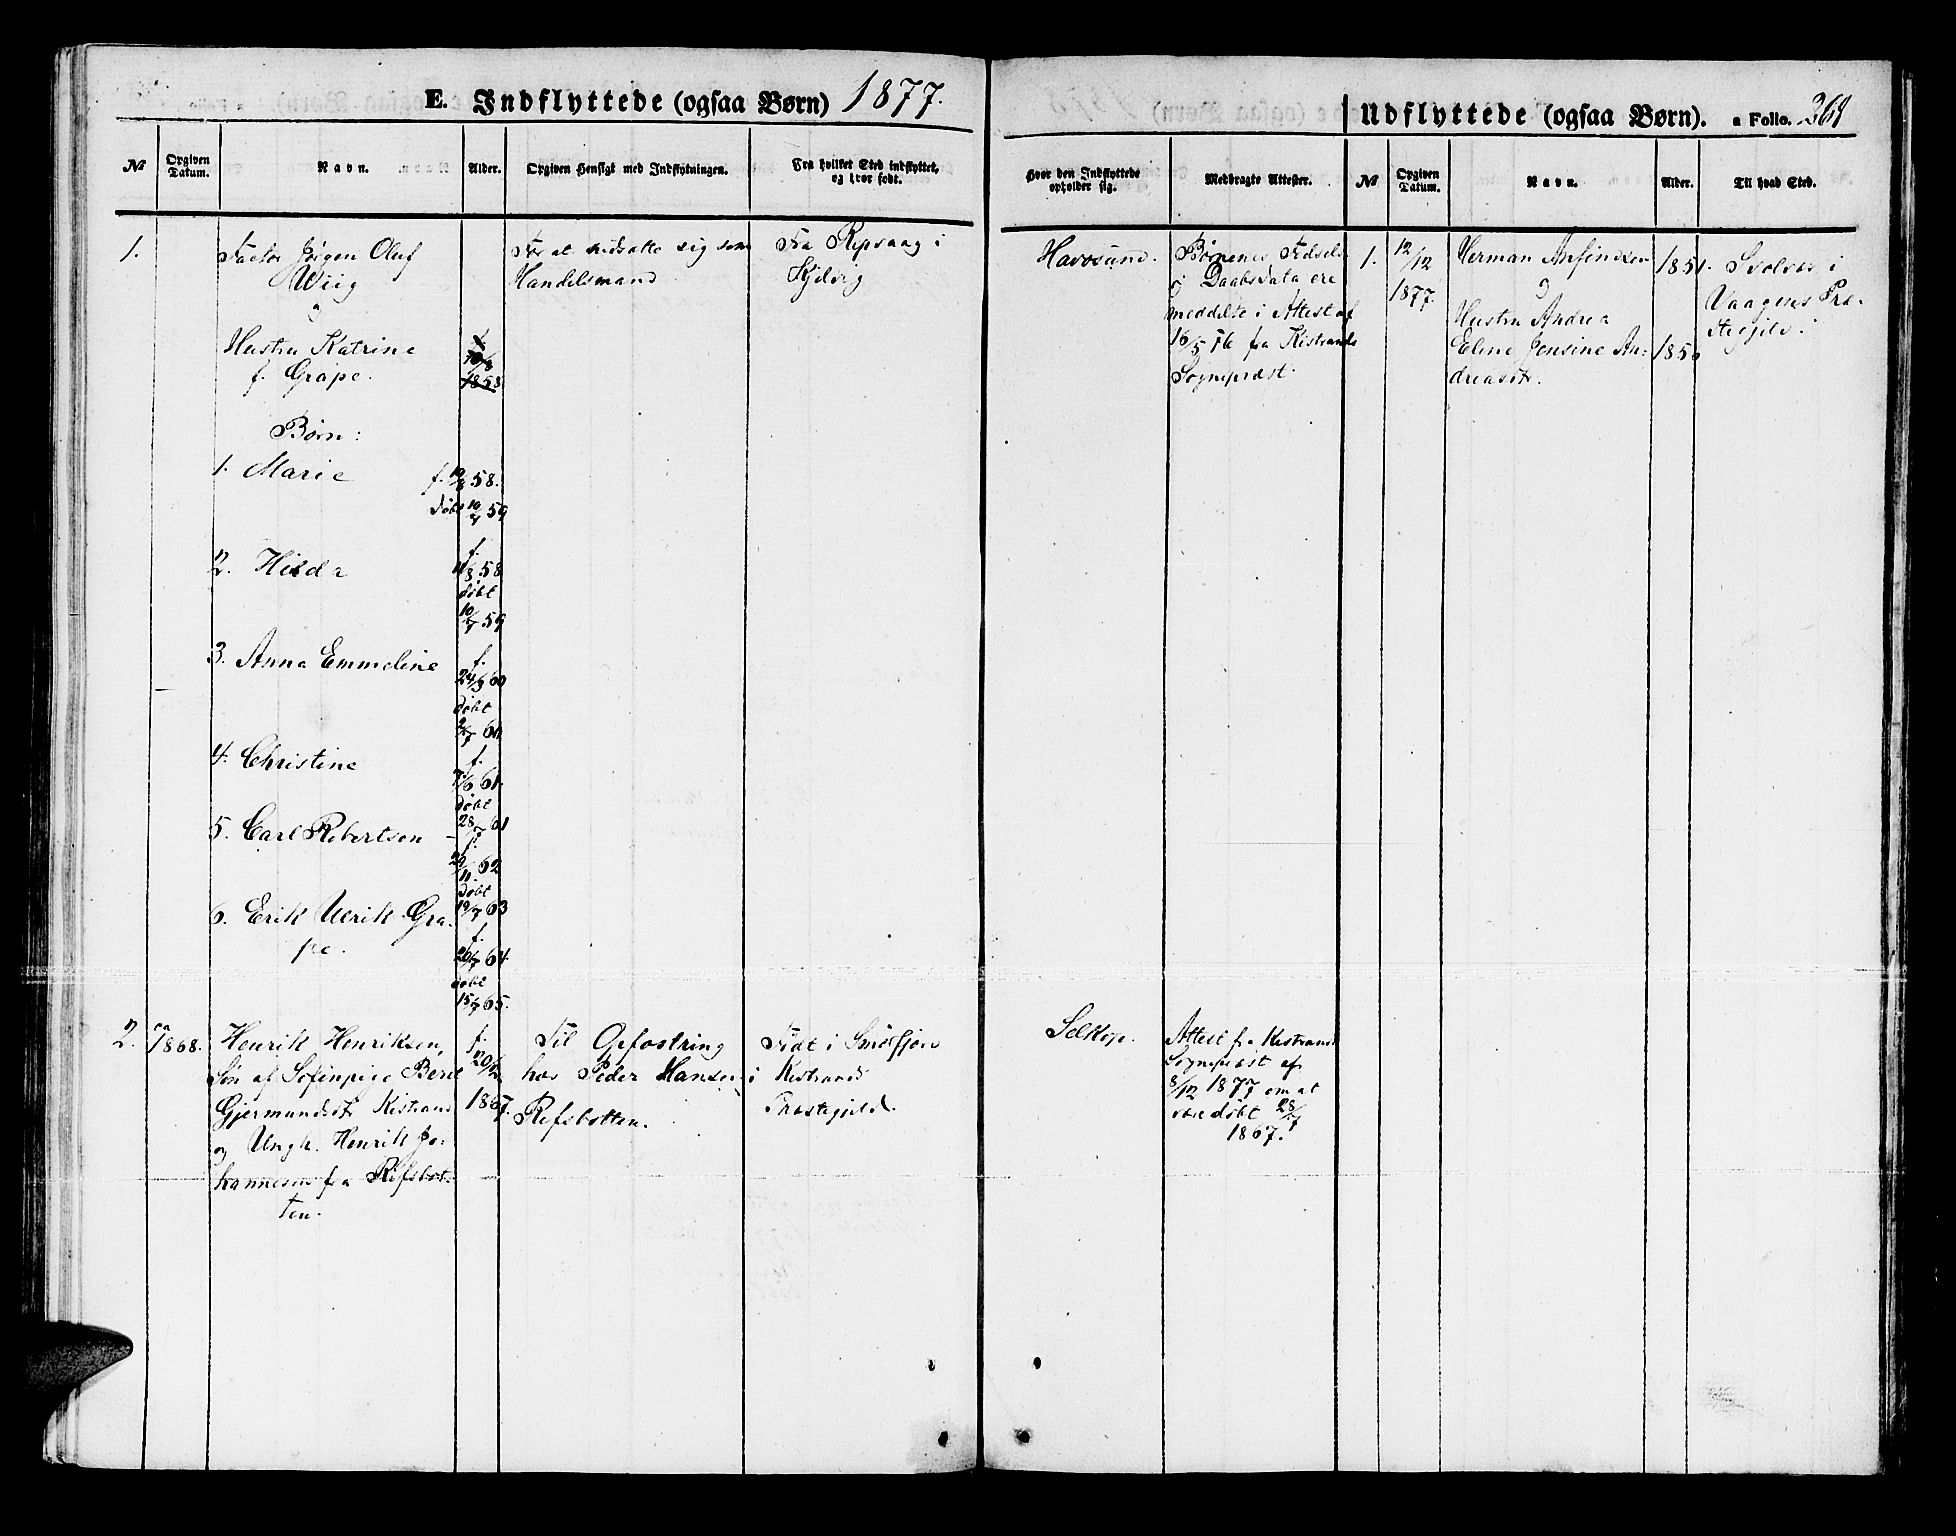 E. Indflyttede (ogsaa Børn) 1877.
No
Opgiven Datum.
Navn.
Alder.
Opgiven Hensigt med Indflytningen.
Fra hvilket Sted indflyttet, og hvor født.
1.
Factor Jörgen Oluf
Wiig
og
Hustru Katrine
f. Grape.
For at nedsætte sig som
Handelsmand
Fra Repvaag i
Kjelvig
Børn:
1. Marie
f. 58.
døbt 10/7 59
2. Hilda
f.
58
døbt
10/7 59
3. Anna Emmeline
f.
24/5 60
døbt
4. Christine
f.
61.
døbt
28/7 61
5. Carl Robertson
f.
29/11 62
døbt
19/7 63
6. Erik Ulrik Gra-
pe.
f.
64
døbt
15/7 65.
2.
ca
1868.
Henrik Henriksen,
Søn af Sofinpige Berit
Gjermundsdtr Kistrand
og Ungk. Henrik Jo-
hannesen fra Refsbot-
ten.
f.
20/2
1867.
Til Opfostring
hos Peder Hansen i
Refsbotten.
Født i Smølfjord
Kistrands
Præstegjeld.
Udflyttede (ogsaa Børn). a Folio. 368
Hvor den Indflyttede opholder sig.
Medbragte Attester.
No
Opgiven Datum.
Navn.
Alder.
Til hvad Sted.
Havøsund.
Børnenes Fødsels
og Daabsdata ere
meddelte i Attest af
16/5 76 fra Kistrands
Sognepræst.
1.
12/12
1877.
Herman Anfindsen
og
Hustru Andrea
Eline Jensine An-
dreasdtr.
1851.
185
Svolvær i
Vaagens Præ-
stegjeld.
Selkop.
Attest fra Kistrands
Sognepræst af
8/12 1877 om at
være døbt 28/7
1867.